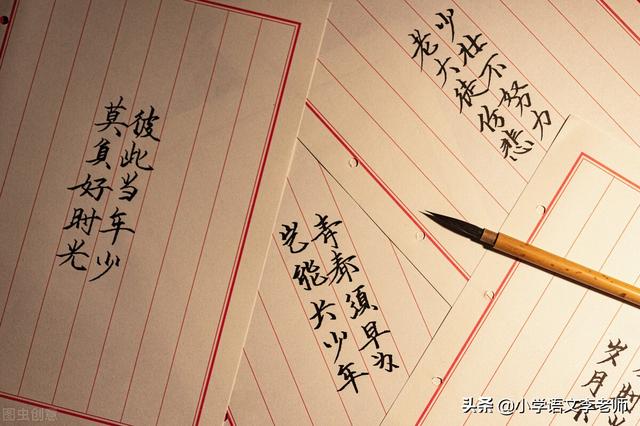 彼此当年少
莫負好时光
少壮不努力
老大徒伤悲
青春須早为
岂能长少年
时
岁月
图虫创意
头条 @小学语文李老师